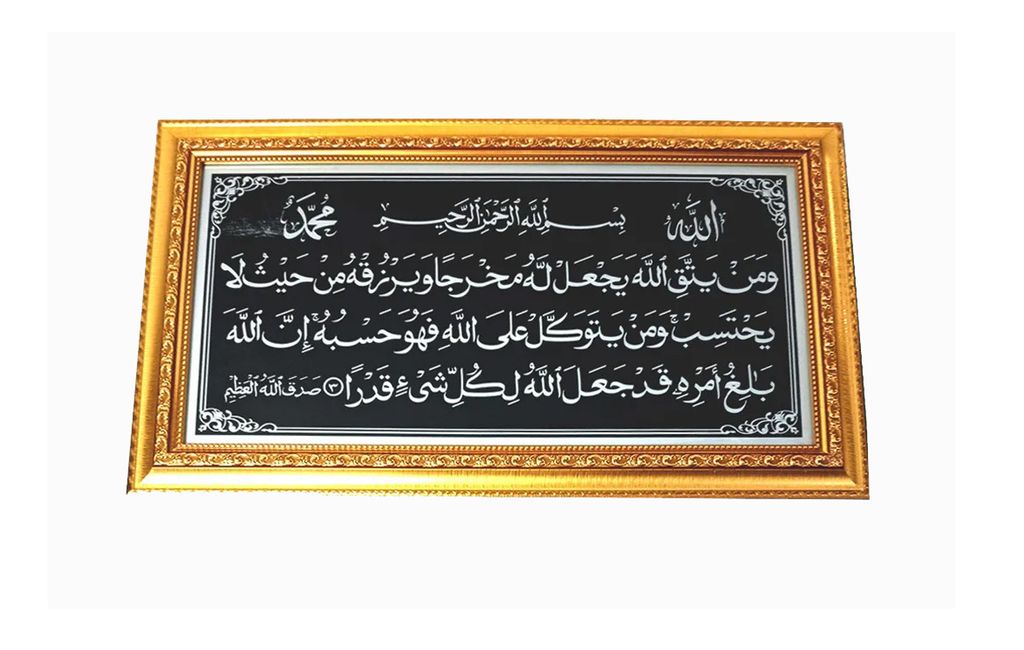 الله بِسْمِ اللَّهِ الرَّحْمَٰنِ الرَّحِيمِ محمد
وَمَنْ يَتَّقِ اللَّهَ يَجْعَلْ لَهُ مَخْرَجًا وَيَرْزُقْهُ مِنْ حَيْثُ لَا
يَحْتَسِبُ ۚ وَمَنْ يَتَوَكَّلْ عَلَى اللَّهِ فَهُوَ حَسْبُهُ ۚ إِنَّ اللَّهَ
بَالِغُ أَمْرِهِ قَدْ جَعَلَ اللَّهُ لِكُلِّ شَيْءٍ قَدْرًا ٣ صَدَقَ اللَّهُ الْعَظِيمُ